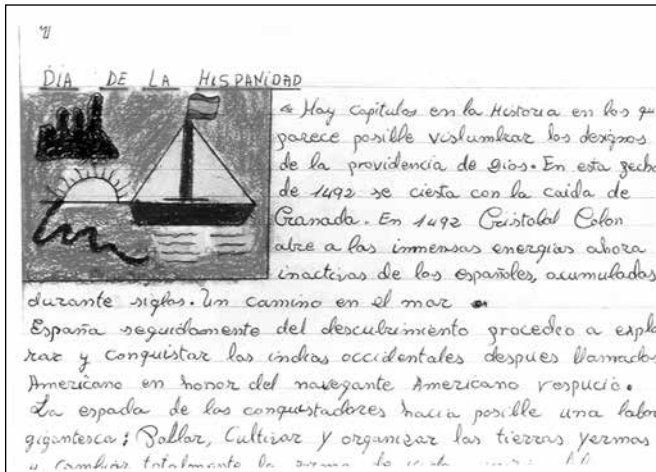 DIA DE LA HISPANIDAD
« Hay capitulos en la Historia en los qu
parece posible vislumbrar los designos
de la providencia de Dios. En esta fecha
de 1492 se ciesta con la caida de
Granada. En 1492 Cristobal Colon
abre a las inmensas energias ahora
inactivas de los españoles, acumuladas
durante siglos. Un camino en el mar
España seguidamente del descubrimiento procedeo a explo
rar y conquistar las indias occidentales despues llamadas
Americano en honor del navegante Americano vespucio.
La espada de los conquistadores hacia posible una labor
gigantesca; Poblar, Cultivar y organizar las tierras yermas
y cambiar totalmente la